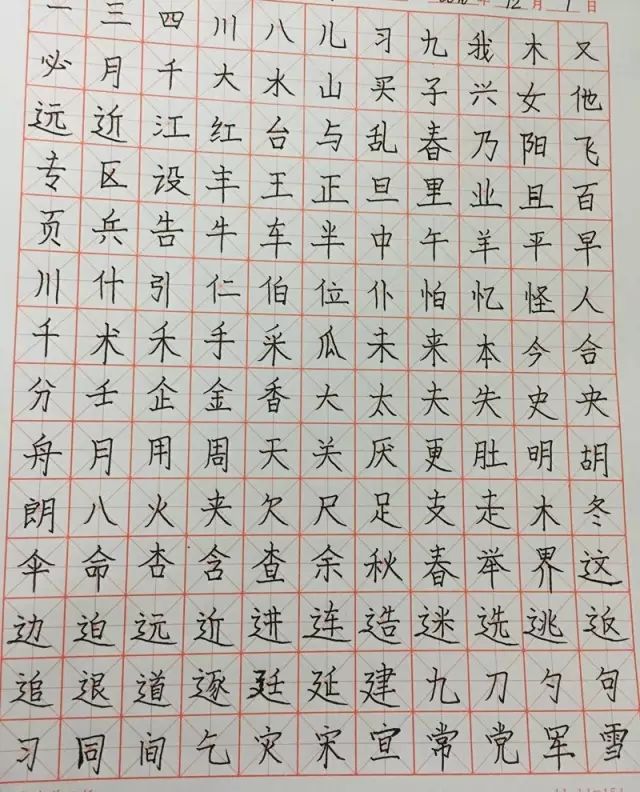 年 12 月 1 日
一三四川八儿习九我木又
必月千大水山买子兴女他
远近江红台与乱春乃阳飞
专区设丰王正旦里业且百
页兵告牛车半中午羊平早
川什引仁伯位仆怕忆怪人
千术禾手采瓜未来本今合
分壬企金香大太夫失史央
舟月用周天关厌更肚明胡
朗八火夹欠尺足支走木冬
伞命杏含查余秋春举界这
边迫远近进连造迷选逃返
追退道逐廷延建九刀勺句
习同间乞灾宋宣常党军雪